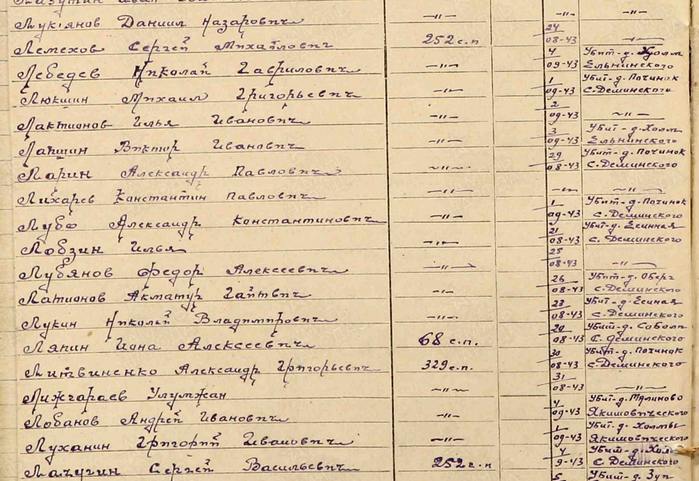 Лукиянов Даниил Назарович —„— —„— —„—
Лемехов Сергей Михайлович 252 с.п 24 08-43 —„—
Лебедев Николай Гаврилович —„— 4 09-43 Убит-д. Холм Ельнинского
Люкшин Михаил Григорьевич —„— 1 09-43 Убит-д. Починок С. Деминского
Лактионов Илья Иванович —„— 2 —„—
Лапшин Виктор Иванович —„— 3 09-43 Убит-д. Холм Ельнинского
Ларин Александр Павлович —„— 29 08-43 Убит-д. Починок С. Деминского
Лихарев Константин Павлович —„— —„— —„—
Лубо Александр Константинович —„— 1 09-43 Убит-д. Починок С. Деминского
Лобзин Илья —„— 21 08-43 Убит-д. Есиная С. Деминского
Лубянов Федор Алексеевич —„— 25 08-43 —„—
Латионов Акматур —„— 26 08-43 Убит-д. Оберг С. Деминского
Лукин Николай Владимирович —„— 23 08-43 Убит-д. Есиная С. Деминского
Ляпин Иона Алексеевич 68 с.п. 20 08-43 Убит-д. С. Деминского
Литвиненко Александр Григорьевич 329 с.п. 30 08-43 Убит-д. Починок С. Деминского
Лижгараев Улумжан —„— 31 08-43 —„—
Лобанов Андрей Иванович —„— 4 09-43 Убит-д. Якимовического
Луханин Григорий Иванович —„— 1 09-43 Убит-д. Холмы Якимовического
Лачугин Сергей Васильевич 252 с.п 4 9-43 Убит-д. Холм С. Деминского
5 Убит-д.